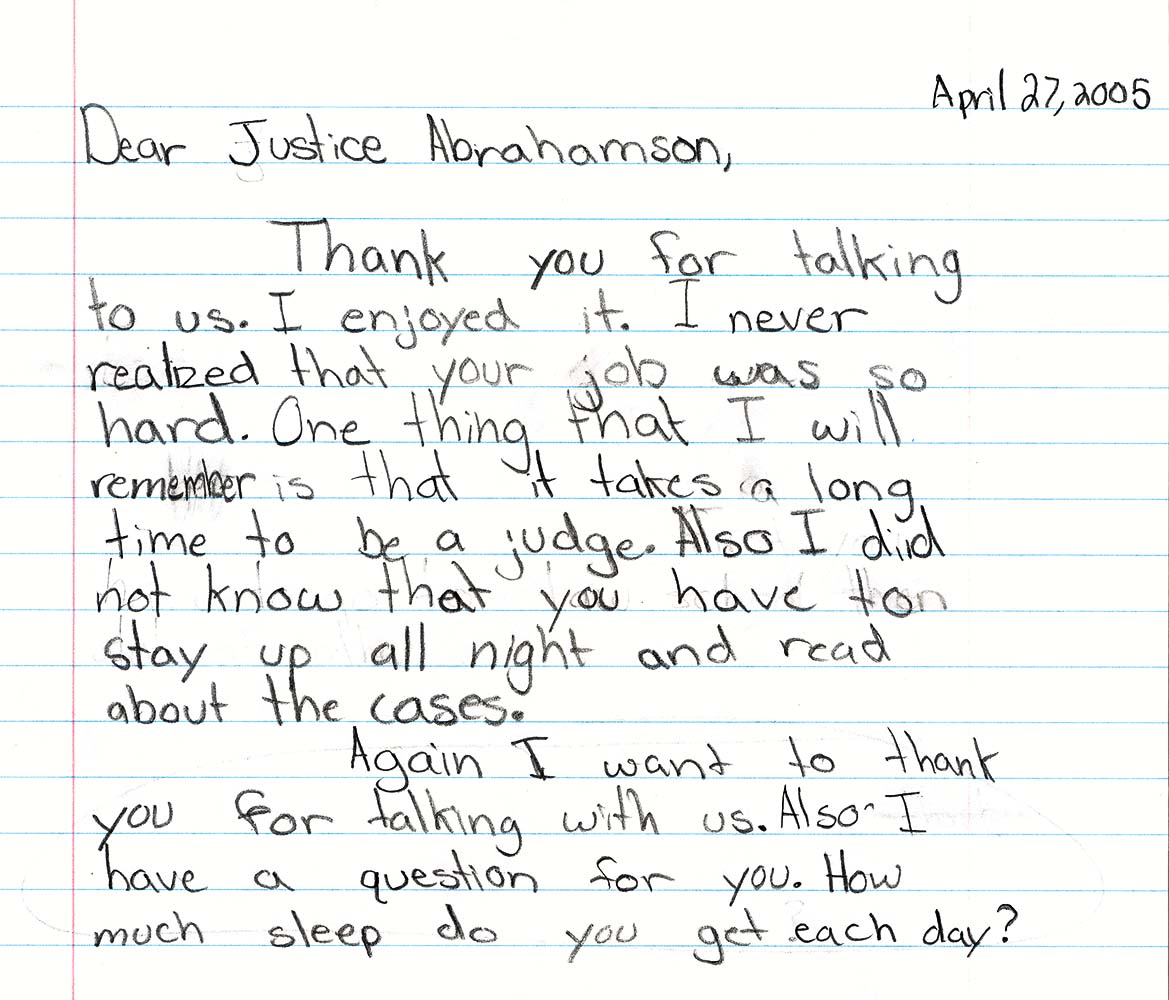 April 27, 2005
Dear Justice Abrahamson,
Thank you for talking
to us. I enjoyed it. I never
realzed that your job was so
hard. One thing that I will
remember is that it takes a long
time to be a judge. Also I did
not know that you have to
stay up all night and read
about the cases.
Again I want to thank
you for talking with us. Also I
have a question for you. How
much sleep do you get each day?